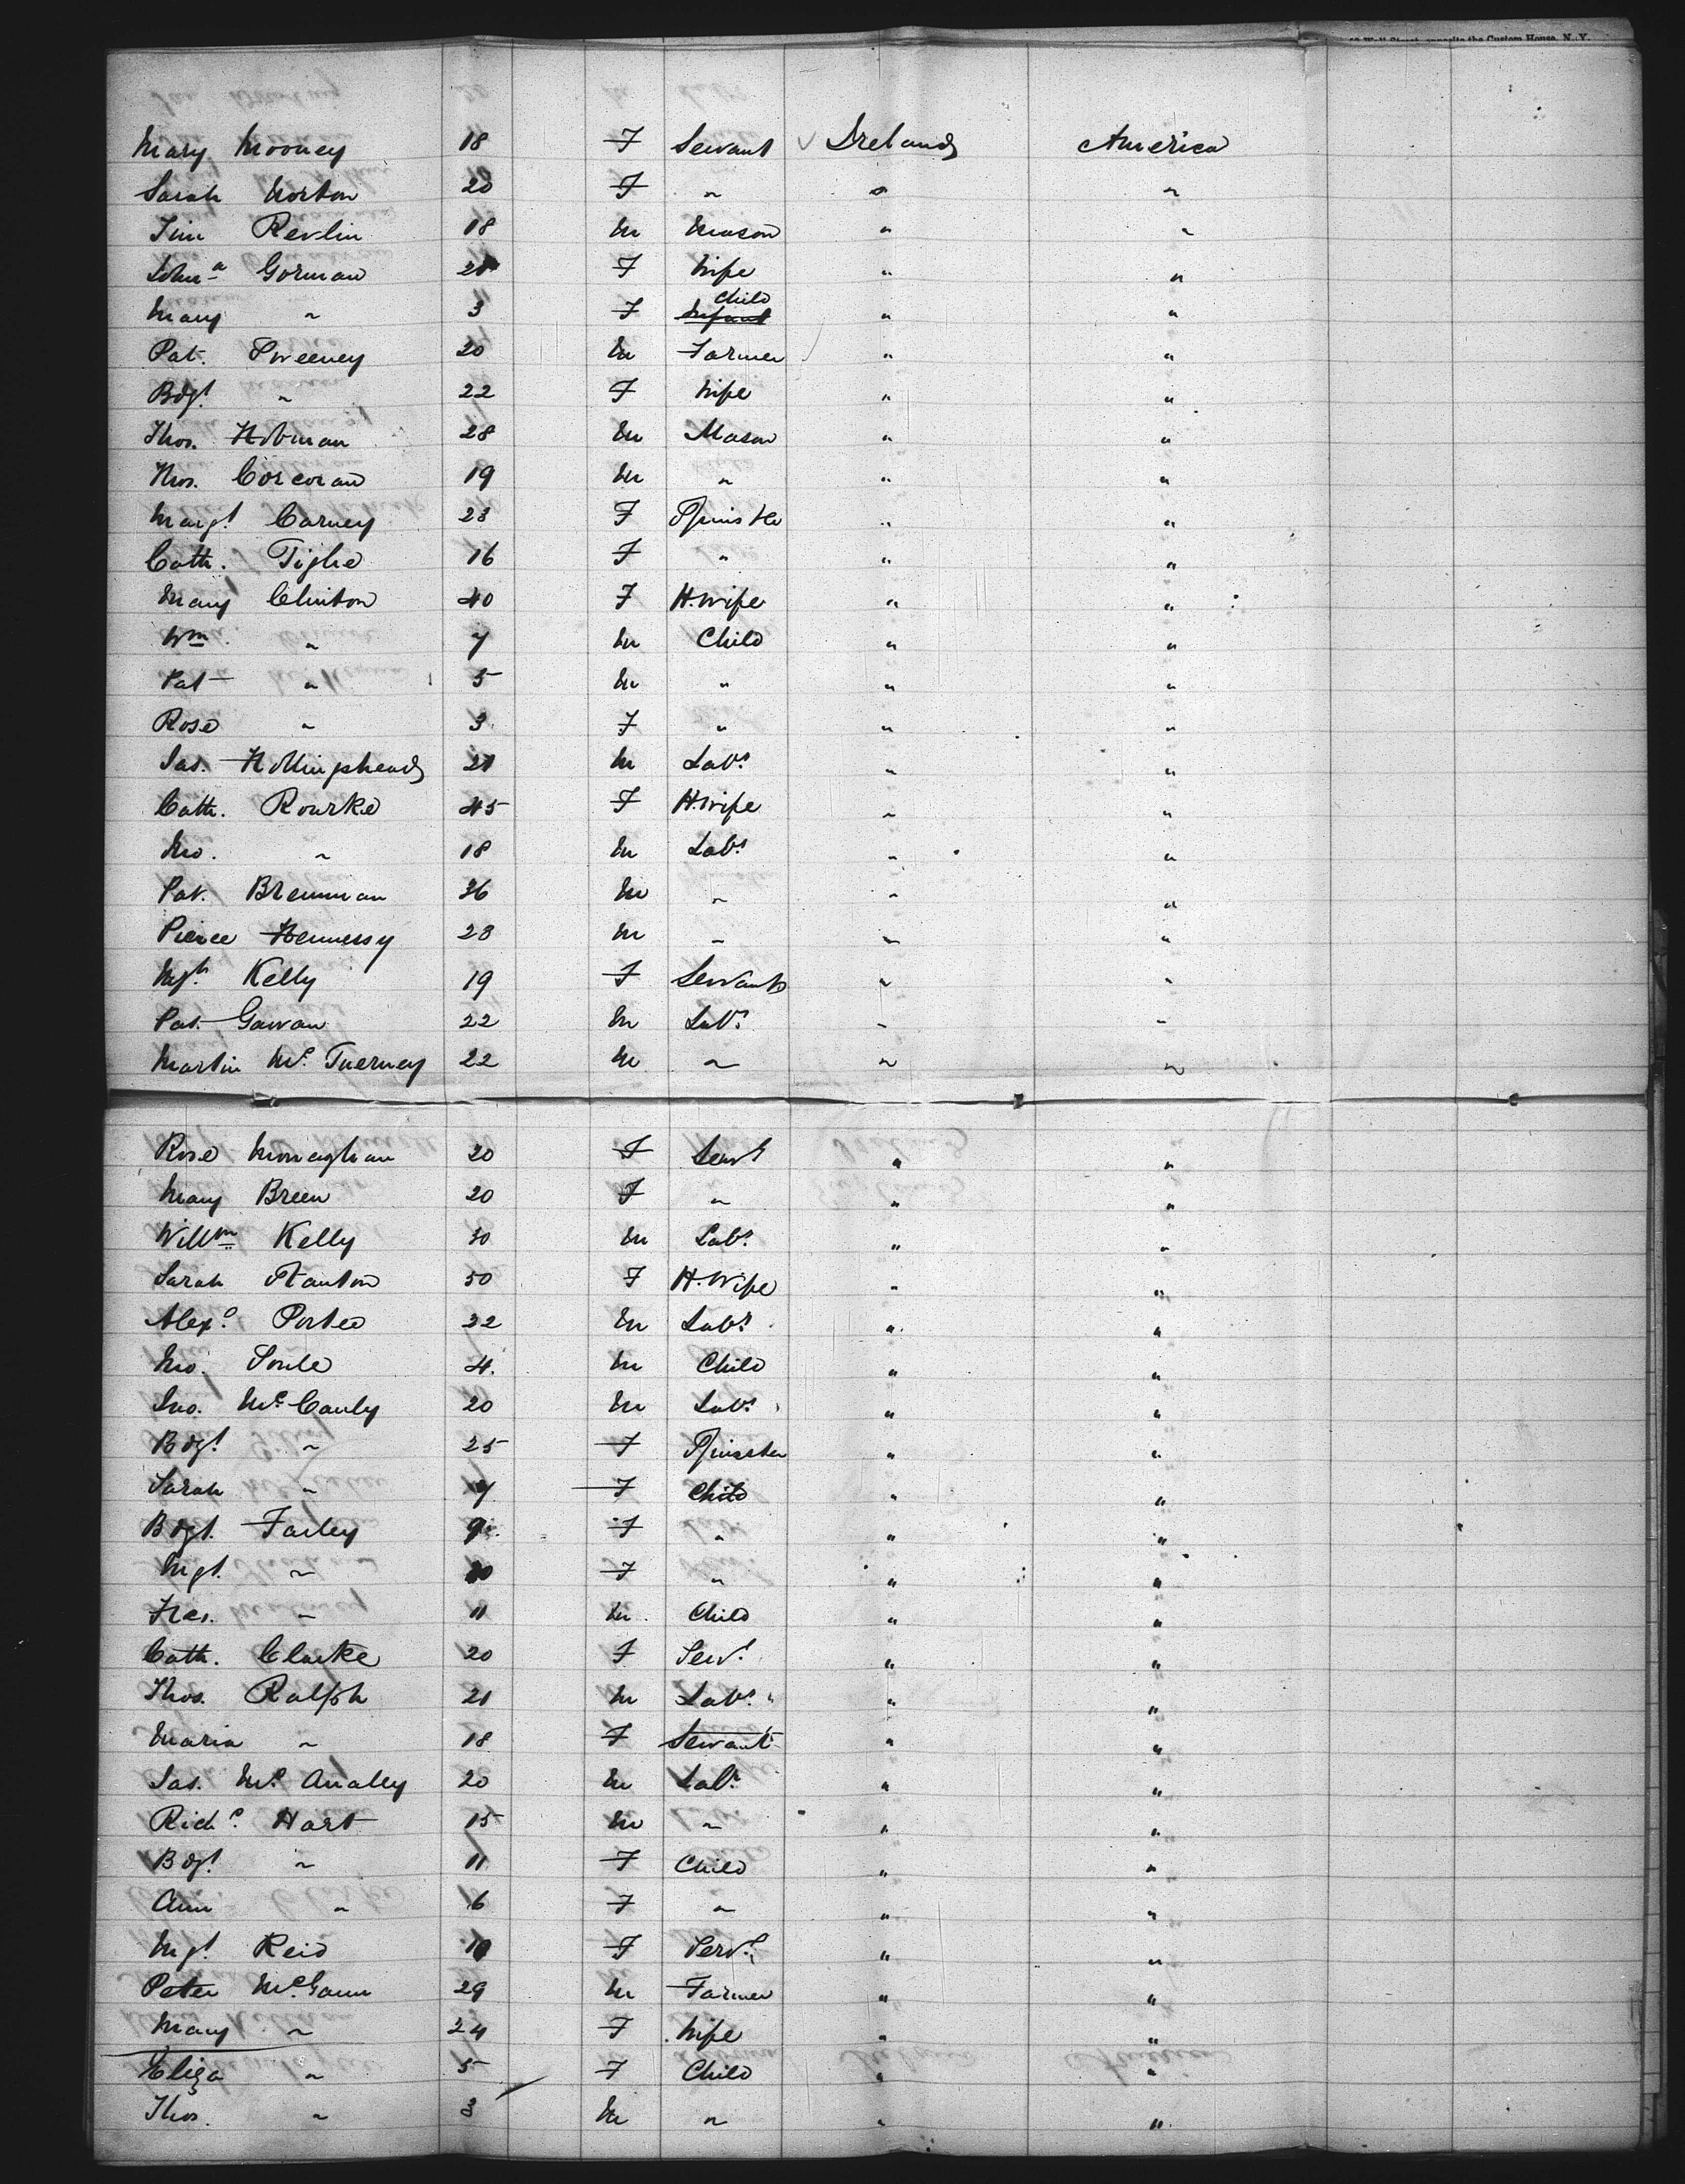 Wall Street, opposite the Custom House, N. Y.
Mary Mooney 18 F Servant Ireland America
Sarah Norton 20 F " " "
Jim Revlin 18 M Mason " "
John^a Gorman 21 F Wife " "
Mary " 3 F Child " "
Pat. Sweeney 20 M Farmer " "
Bdgt " 22 F Wife " "
Thos. Holman 28 M Mason " "
Thos. Corcoran 19 M " " "
Margt Carney 23 F Spinster " "
Cath. Tighe 16 F " " "
Mary Clinton 40 F H. Wife " "
Wm. " 7 M Child " "
Pat " 5 M " " "
Rose " 3 F " " "
Jas. Hollingshead 21 M Labr " "
Cath. Rourke 45 F H. Wife " "
Jno. " 18 M Labr " "
Pat. Brennan 36 M " " "
Pierce Hennessy 23 M " " "
Mgt. Kelly 19 F Servant " "
Pat. Gavan 22 M Labr " "
Martin McTuerney 22 M " " "
Rose Monaghan 20 F Servt " "
Mary Breen 20 F " " "
Willm Kelly 30 M Labr " "
Sarah Stanton 50 F H. Wife " "
Alexr Porter 22 M Labr " "
Jno. 4 M Child " "
Jno. McCauly 20 M Labr " "
Bdgt " 25 F Spinster " "
Sarah " 7 F Child " "
Bdgt. Farley 9 F " " "
Mgt. " 10 F " " "
Fras. " 11 M Child " "
Cath. Clarke 20 F Servt " "
Thos. Ralph 21 M Labr " "
Maria " 18 F Servant " "
Jas. McAnally 20 M Labr " "
Richd Hart 15 M " " "
Bdgt " 11 F Child " "
Ann " 6 F " " "
Mgt Reid F Servt " "
Peter McGann 29 M Farmer " "
Mary " 24 F Wife " "
Eliza " 5 F Child " "
Thos. " 3 M " " "